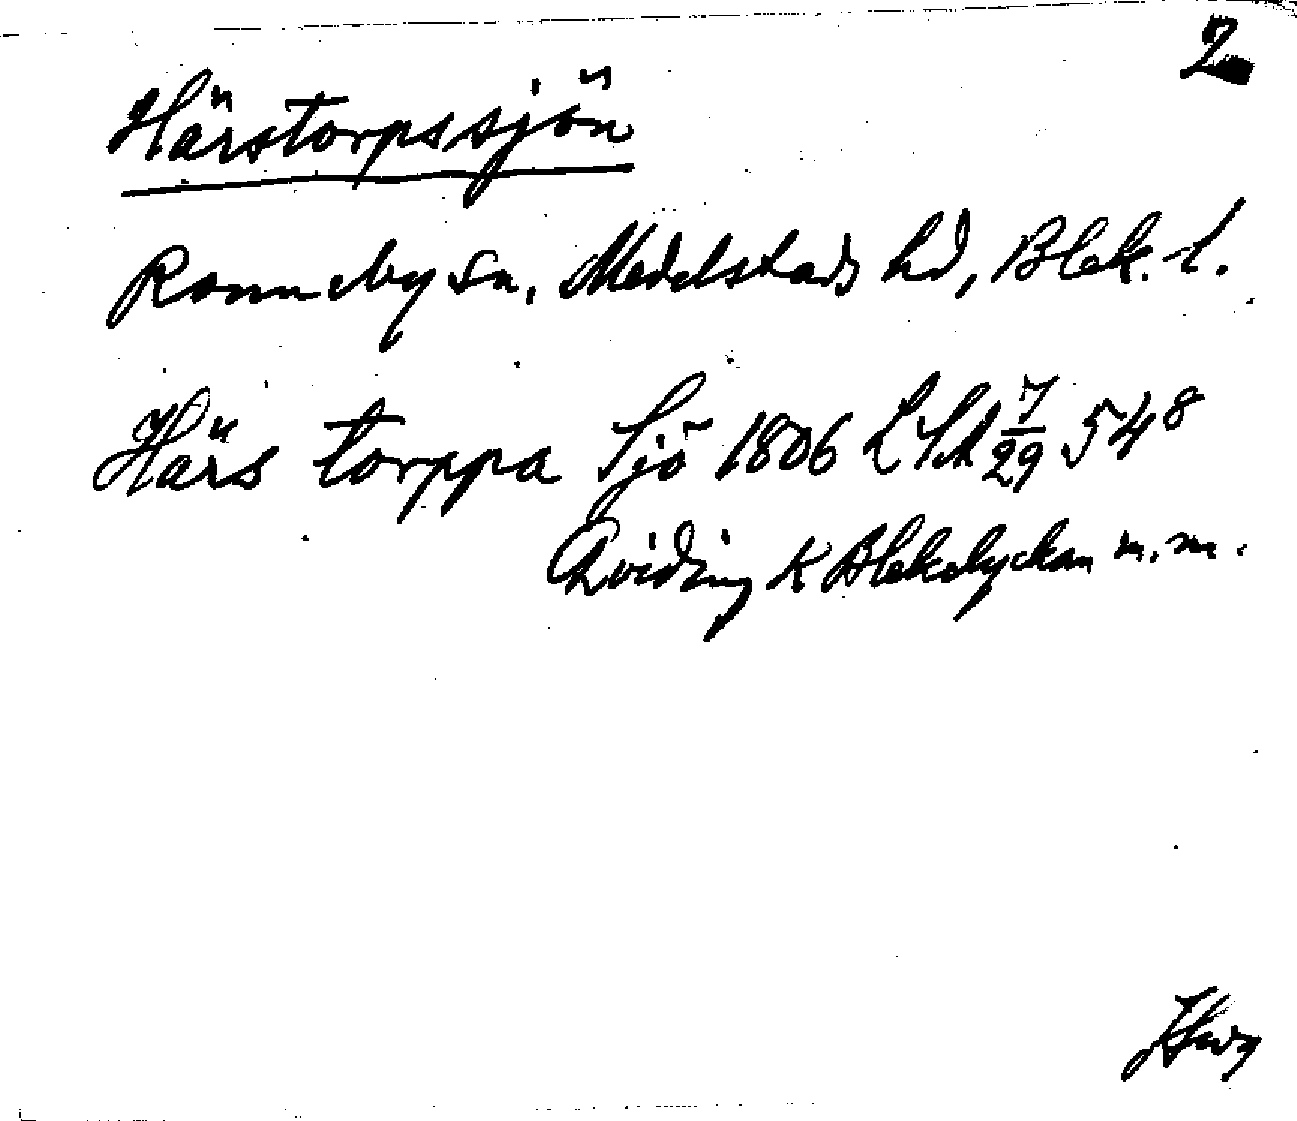 2
Härstorpssjön
Ronneby sn, Medelstads hd, Blek. l.
Härs torppa Sjö 1806 LSA 7/29 54⁸
Qviding K Blekelyckan m.m.